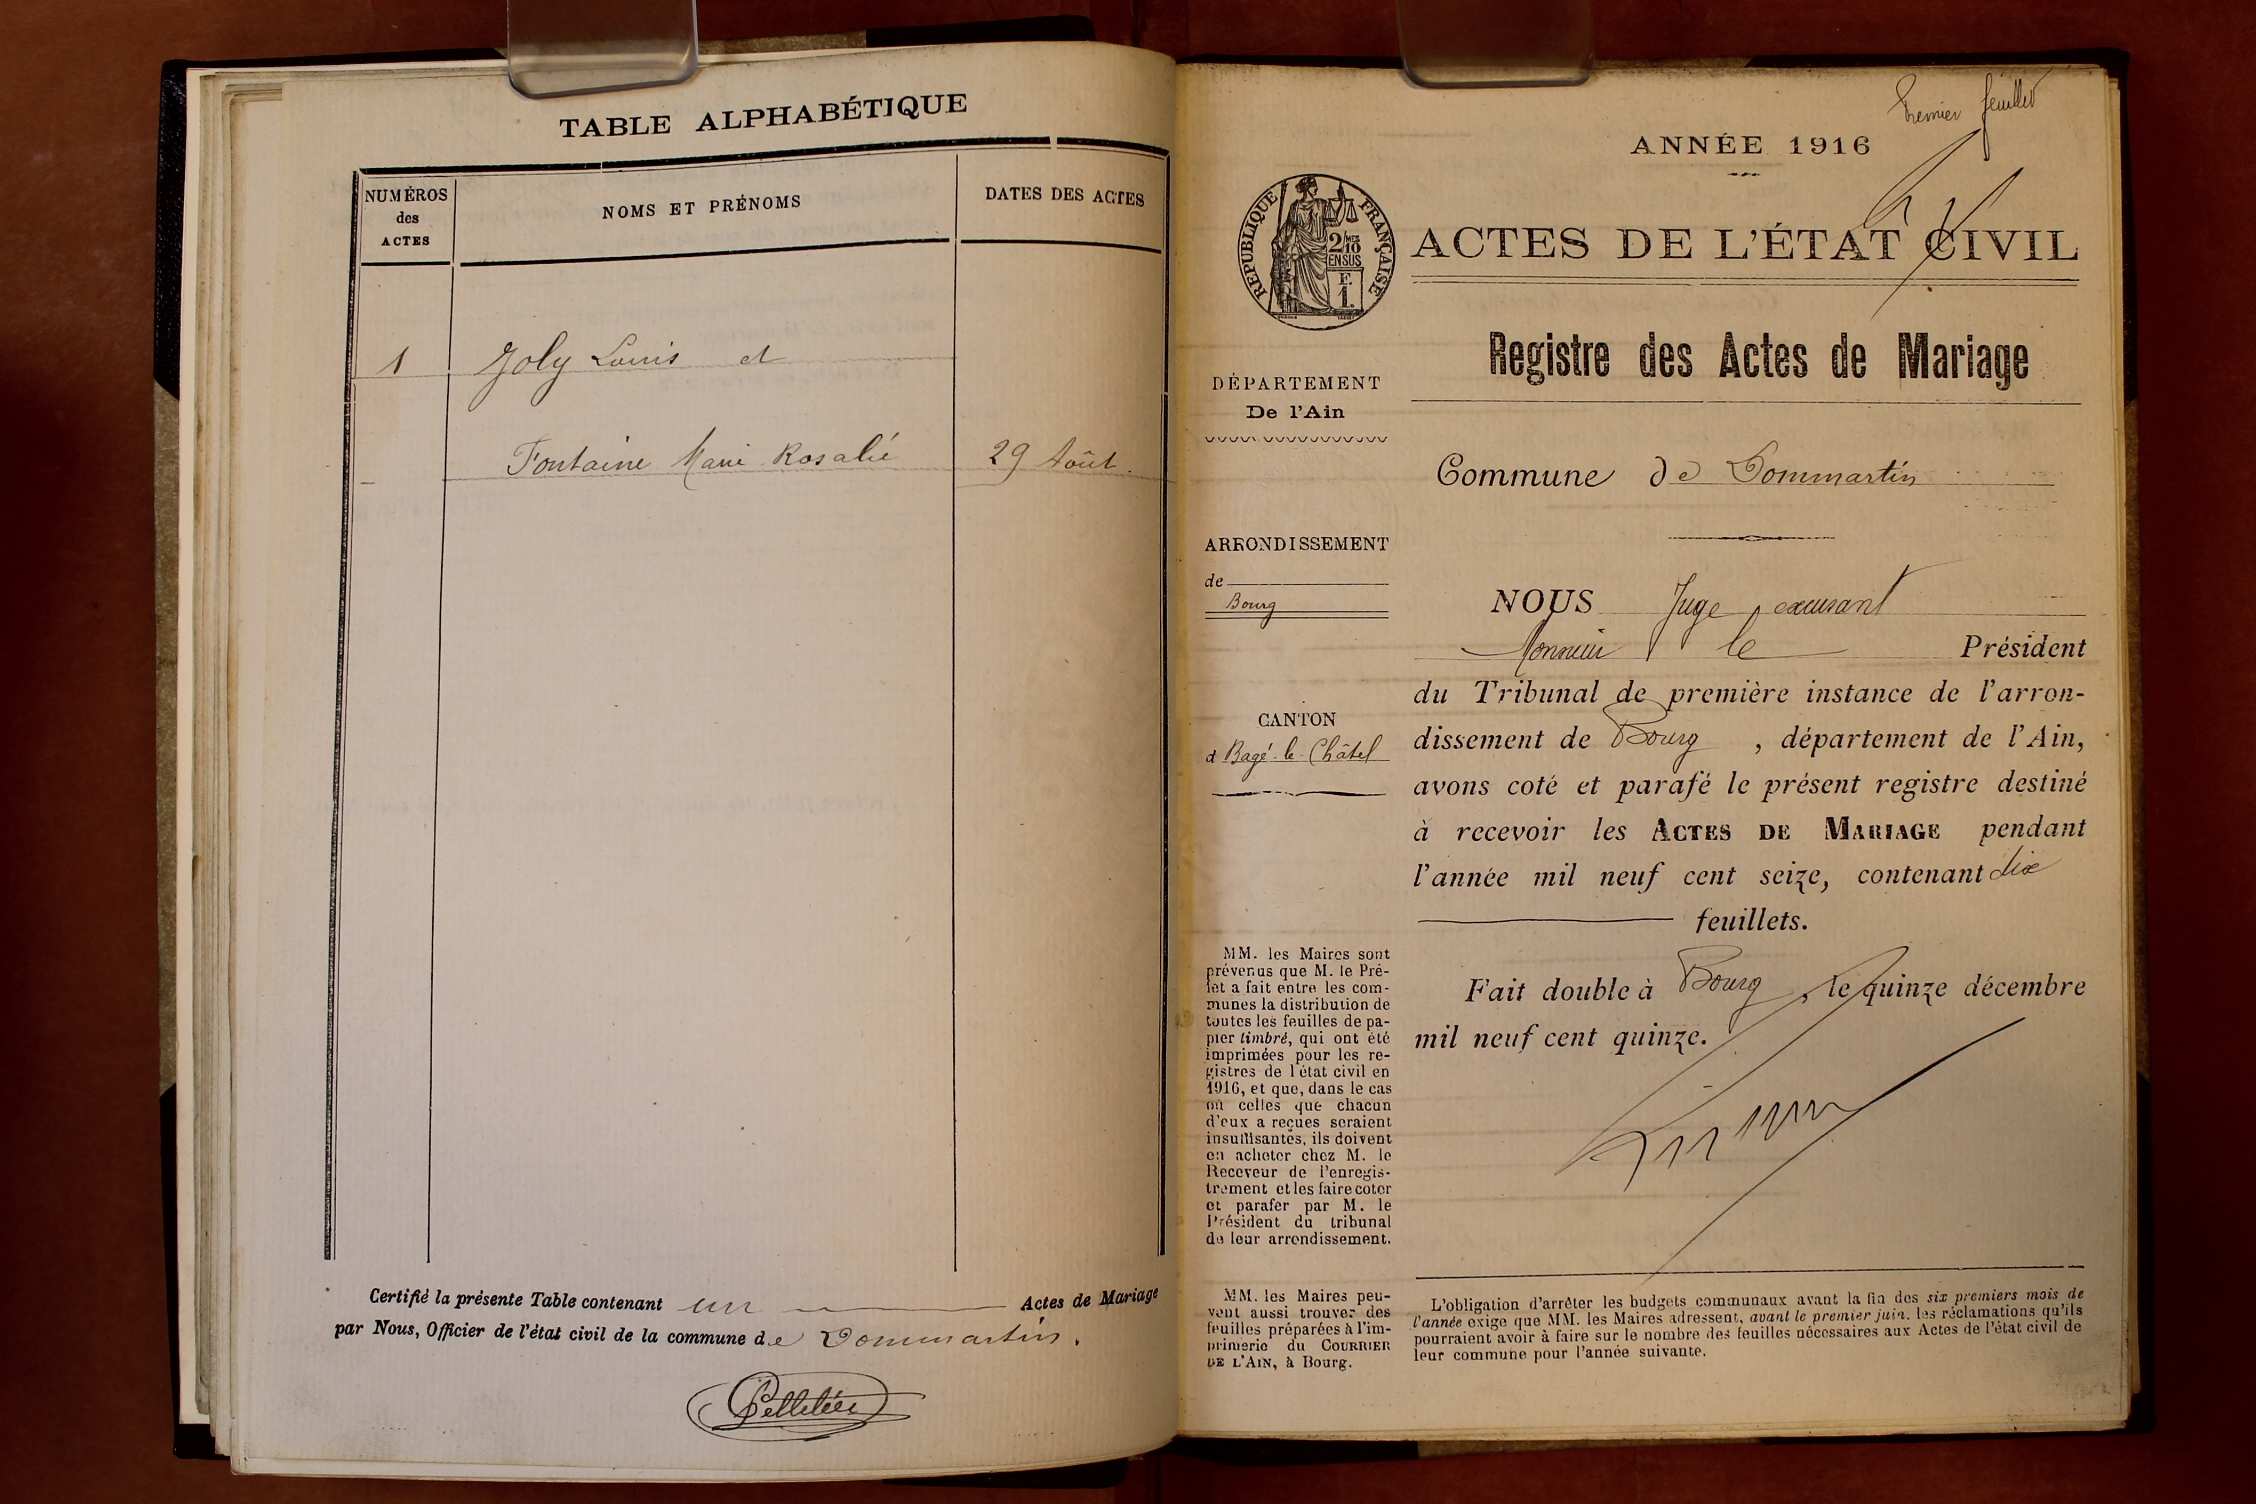 TABLE ALPHABÉTIQUE
NUMÉROS
des
ACTES
NOMS ET PRÉNOMS
DATES DES ACTES
1 Joly Louis et
Fontaine Marie Rosalie 29 Août
Certifié la présente Table contenant un Actes de Mariage
par Nous, Officier de l'état civil de la commune de Dommartin.
Pelletier
Premier feuillet
ANNÉE 1916
RÉPUBLIQUE FRANÇAISE
2/10MES
EN SUS
F.
1.
ACTES DE L'ÉTAT CIVIL
Registre des Actes de Mariage
DÉPARTEMENT
De l'Ain
Commune de Dommartin
ARRONDISSEMENT
de
Bourg
CANTON
d Bagé-le-Châtel
NOUS Juge excusant
Monsieur le Président
du Tribunal de première instance de l'arron-
dissement de Bourg, département de l'Ain,
avons coté et parafé le présent registre destiné
à recevoir les ACTES DE MARIAGE pendant
l'année mil neuf cent seize, contenant dix
feuillets.
Fait double à Bourg, le quinze décembre
mil neuf cent quinze.
MM. les Maires sont
prévenus que M. le Pré-
fet a fait entre les com-
munes la distribution de
toutes les feuilles de pa-
pier timbré, qui ont été
imprimées pour les re-
gistres de l'état civil en
1916, et que, dans le cas
où celles que chacun
d'eux a reçues seraient
insuffisantes, ils doivent
en acheter chez M. le
Receveur de l'enregis-
trement et les faire coter
et parafer par M. le
Président du tribunal
de leur arrondissement.
MM. les Maires peu-
vent aussi trouver des
feuilles préparées à l'im-
primerie du COURRIER
DE L'AIN, à Bourg.
L'obligation d'arrêter les budgets communaux avant la fin des six premiers mois de
l'année exige que MM. les Maires adressent, avant le premier juin, les réclamations qu'ils
pourraient avoir à faire sur le nombre des feuilles nécessaires aux Actes de l'état civil de
leur commune pour l'année suivante.